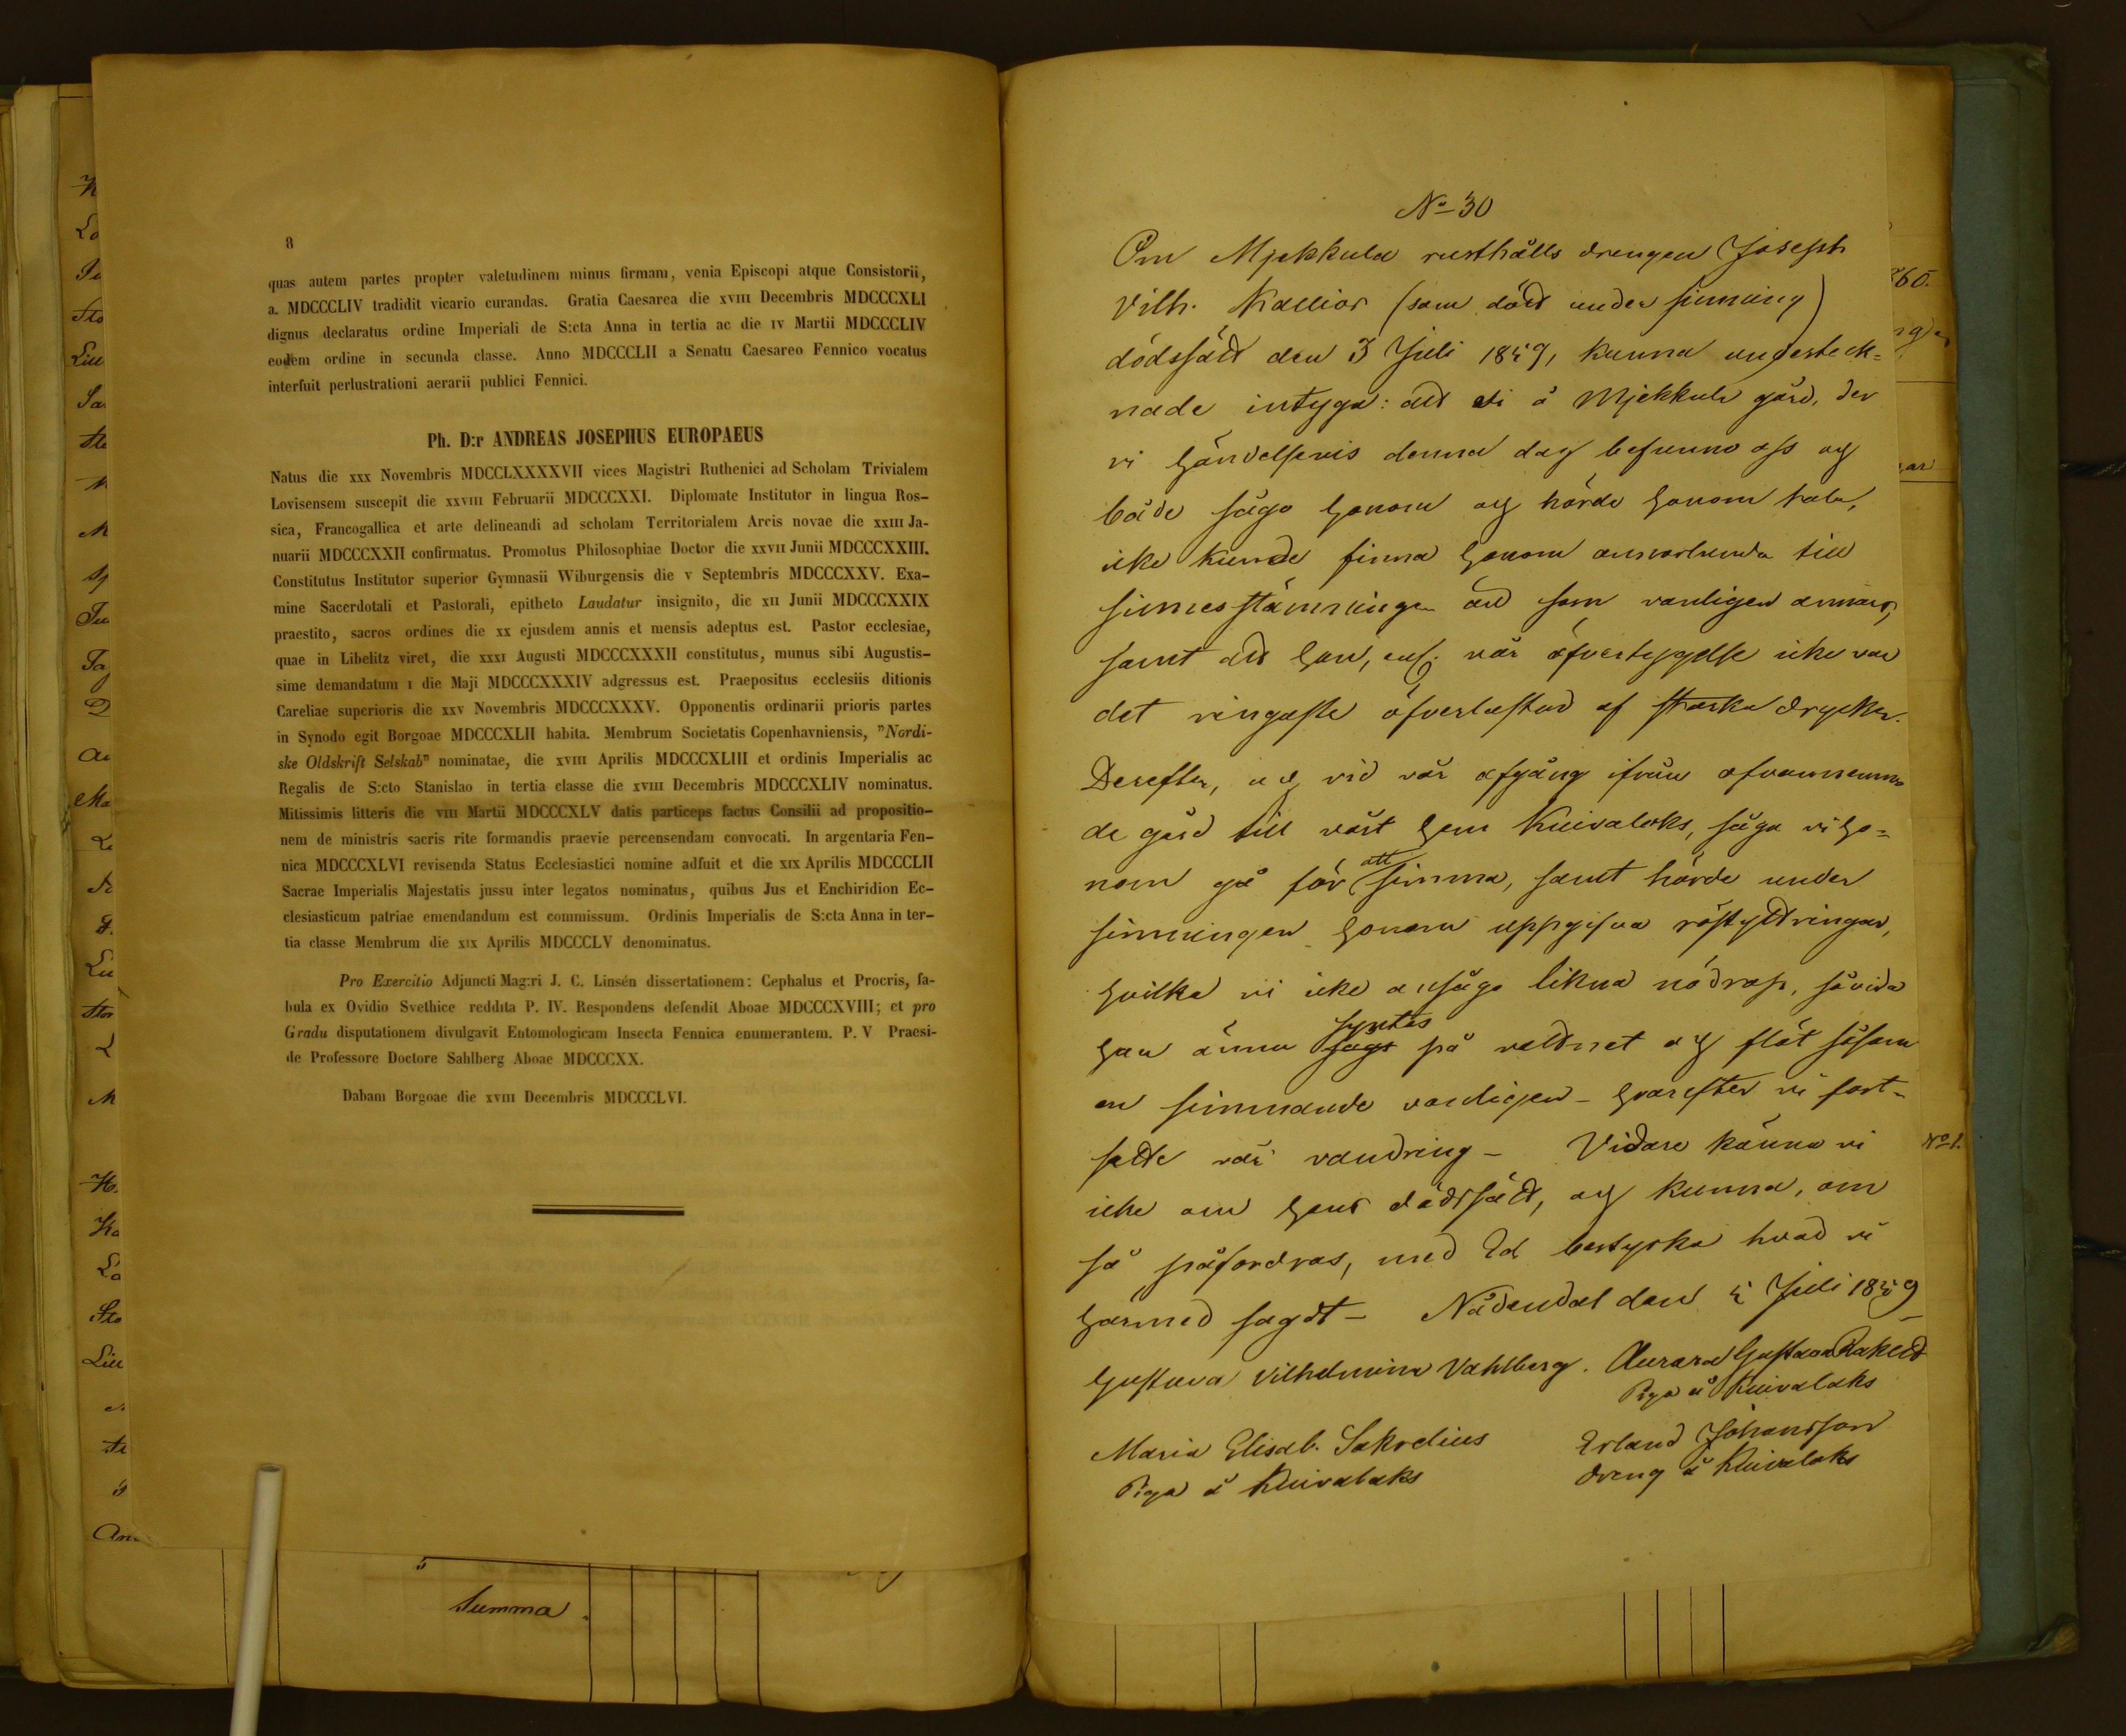 8
quas autem partes propter valetudinem minus firmam, venia Episcopi atque Consistorii,
a. MDCCCLIV tradidit vicario curandas. Gratia Caesarea die XVIII Decembris MDCCCXLI
dignus declaratus ordine Imperiali de S:cta Anna in tertia ac die IV Martii MDCCCLIV
eodem ordine in secunda classe. Anno MDCCCLII a Senatu Caesareo Fennico vocatus
interfuit perlustrationi aerarii publici Fennici.
Ph. D:r ANDREAS JOSEPHUS EUROPAEUS
Natus die XXX Novembris MDCCLXXXXVII vices Magistri Ruthenici ad Scholam Trivialem
Lovisensem suscepit die XXVIII Februarii MDCCCXXI. Diplomate Institutor in lingua Ros-
sica, Francogallica et arte delineandi ad scholam Territorialem Arcis novae die XXIII Ja-
nuarii MDCCCXXII confirmatus. Promotus Philosophiae Doctor die XXVII Junii MDCCCXXIII.
Constitutus Institutor superior Gymnasii Wiburgensis die V Septembris MDCCCXXV. Exa-
mine Sacerdotali et Pastorali, epitheto Laudatur insignito, die XII Junii MDCCCXXIX
praestito, sacros ordines die XX ejusdem annis et mensis adeptus est. Pastor ecclesiae,
quae in Libelitz viret, die XXXI Augusti MDCCCXXXII constitutus, munus sibi Augustis-
sime demandatum I die Maji MDCCCXXXIV adgressus est. Praepositus ecclesiis ditionis
Careliae superioris die XXV Novembris MDCCCXXXV. Opponentis ordinarii prioris partes
in Synodo egit Borgoae MDCCCXLII habita. Membrum Societatis Copenhavniensis, "Nordi-
ske Oldskrift Selskab" nominatae, die XVIII Aprilis MDCCCXLIII et ordinis Imperialis ac
Regalis de S:cto Stanislao in tertia classe die XVIII Decembris MDCCCXLIV nominatus.
Mitissimis litteris die VIII Martii MDCCCXLV datis particeps factus Consilii ad propositio-
nem de ministris sacris rite formandis praevie percensendam convocati. In argentaria Fen-
nica MDCCCXLVI revisenda Status Ecclesiastici nomine adfuit et die XIX Aprilis MDCCCLII
Sacrae Imperialis Majestatis jussu inter legatos nominatus, quibus Jus et Enchiridion Ec-
clesiasticum patriae emendandum est commissum. Ordinis Imperialis de S:cta Anna in ter-
tia classe Membrum die XIX Aprilis MDCCCLV denominatus.
Pro Exercitio Adjuncti Mag:ri J. C. Linsén dissertationem: Cephalus et Procris, fa-
bula ex Ovidio Svethice reddita P. IV. Respondens defendit Aboae MDCCCXVIII; et pro
Gradu disputationem divulgavit Entomologicam Insecta Fennica enumerantem. P. V Praesi-
de Professore Doctore Sahlberg Aboae MDCCCXX.
Dabam Borgoae die XVIII Decembris MDCCCLVI.
Summa
No 30
Om Mjekkula rusthålls drengen Joseph
Vilh. (som död under simning)
dödssätt den 3 Juli 1859, kunna underteck-
nade intyga: att vi å Mjekkula gård, der
vi händelsevis denna dag befunno oss och
både sågo honom och hörde honom tala,
icke kunde finna honom annorlunda till
sinnesstämningen än som vanligen annars,
samt att han, enl. vår öfvertygelse icke var
det ringaste öfverlastad af starka drycker.
Derefter, och vid vår afgång ifrån ofvannemn
de gård till vårt hem Kuivalaks, sågo vi ho-
nom gå för att simma, samt hörde under
simningen honom uppgifva röstyttringar,
hvilka vi icke ansågo likna nödrop, såvida
han ännu syntes på vattnet och flöt såsom
en simmande vanligen - hvarefter vi fort-
satte vår vandring - Vidare känna vi
icke om hans dödssätt, och kunna, om
så påfordras, med Ed bestyrka hvad vi
härmed sagdt - Nådendal den 5 Juli 1859
Gustava Vilhelmina Vahlberg. Aurora Gustava
Piga å Kuivalaks
Maria Elisab. Erland Johansson
Piga å Kuivalaks dreng å Kuivalaks
No 1.